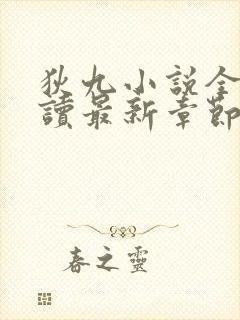 狄九小說全
讀最新章節
春之靈